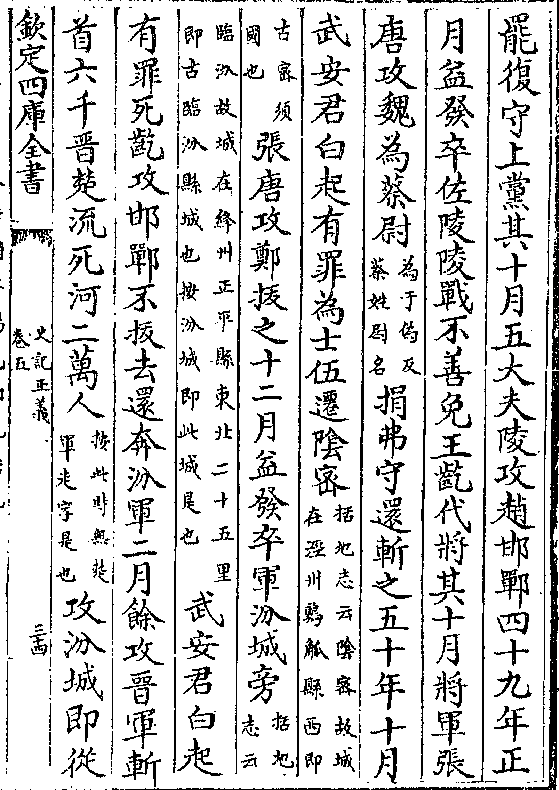 罷復守上黨其十月五大夫陵攻趙邯鄲四十九年正
月益發卒佐陵陵戰不善免王齕代將其十月將軍張
唐攻魏為蔡尉為于偽反蔡姓尉名捐弗守還斬之五十年十月
武安君白起有罪為士伍遷陰密括地志云陰密故城在涇州鶉觚縣西即
古密須國也張唐攻鄭拔之十二月益發卒軍汾城旁括地志云
臨汾故城在絳州正平縣東北二十五里即古臨汾縣城也按汾城即此城是也武安君白起
有罪死齕攻邯鄲不拔去還奔汾軍二月餘攻晉軍斬
首六千晉楚流死河二萬人按此時無楚軍走字是也攻汾城即從
欽定四庫全書
史記正義
卷五